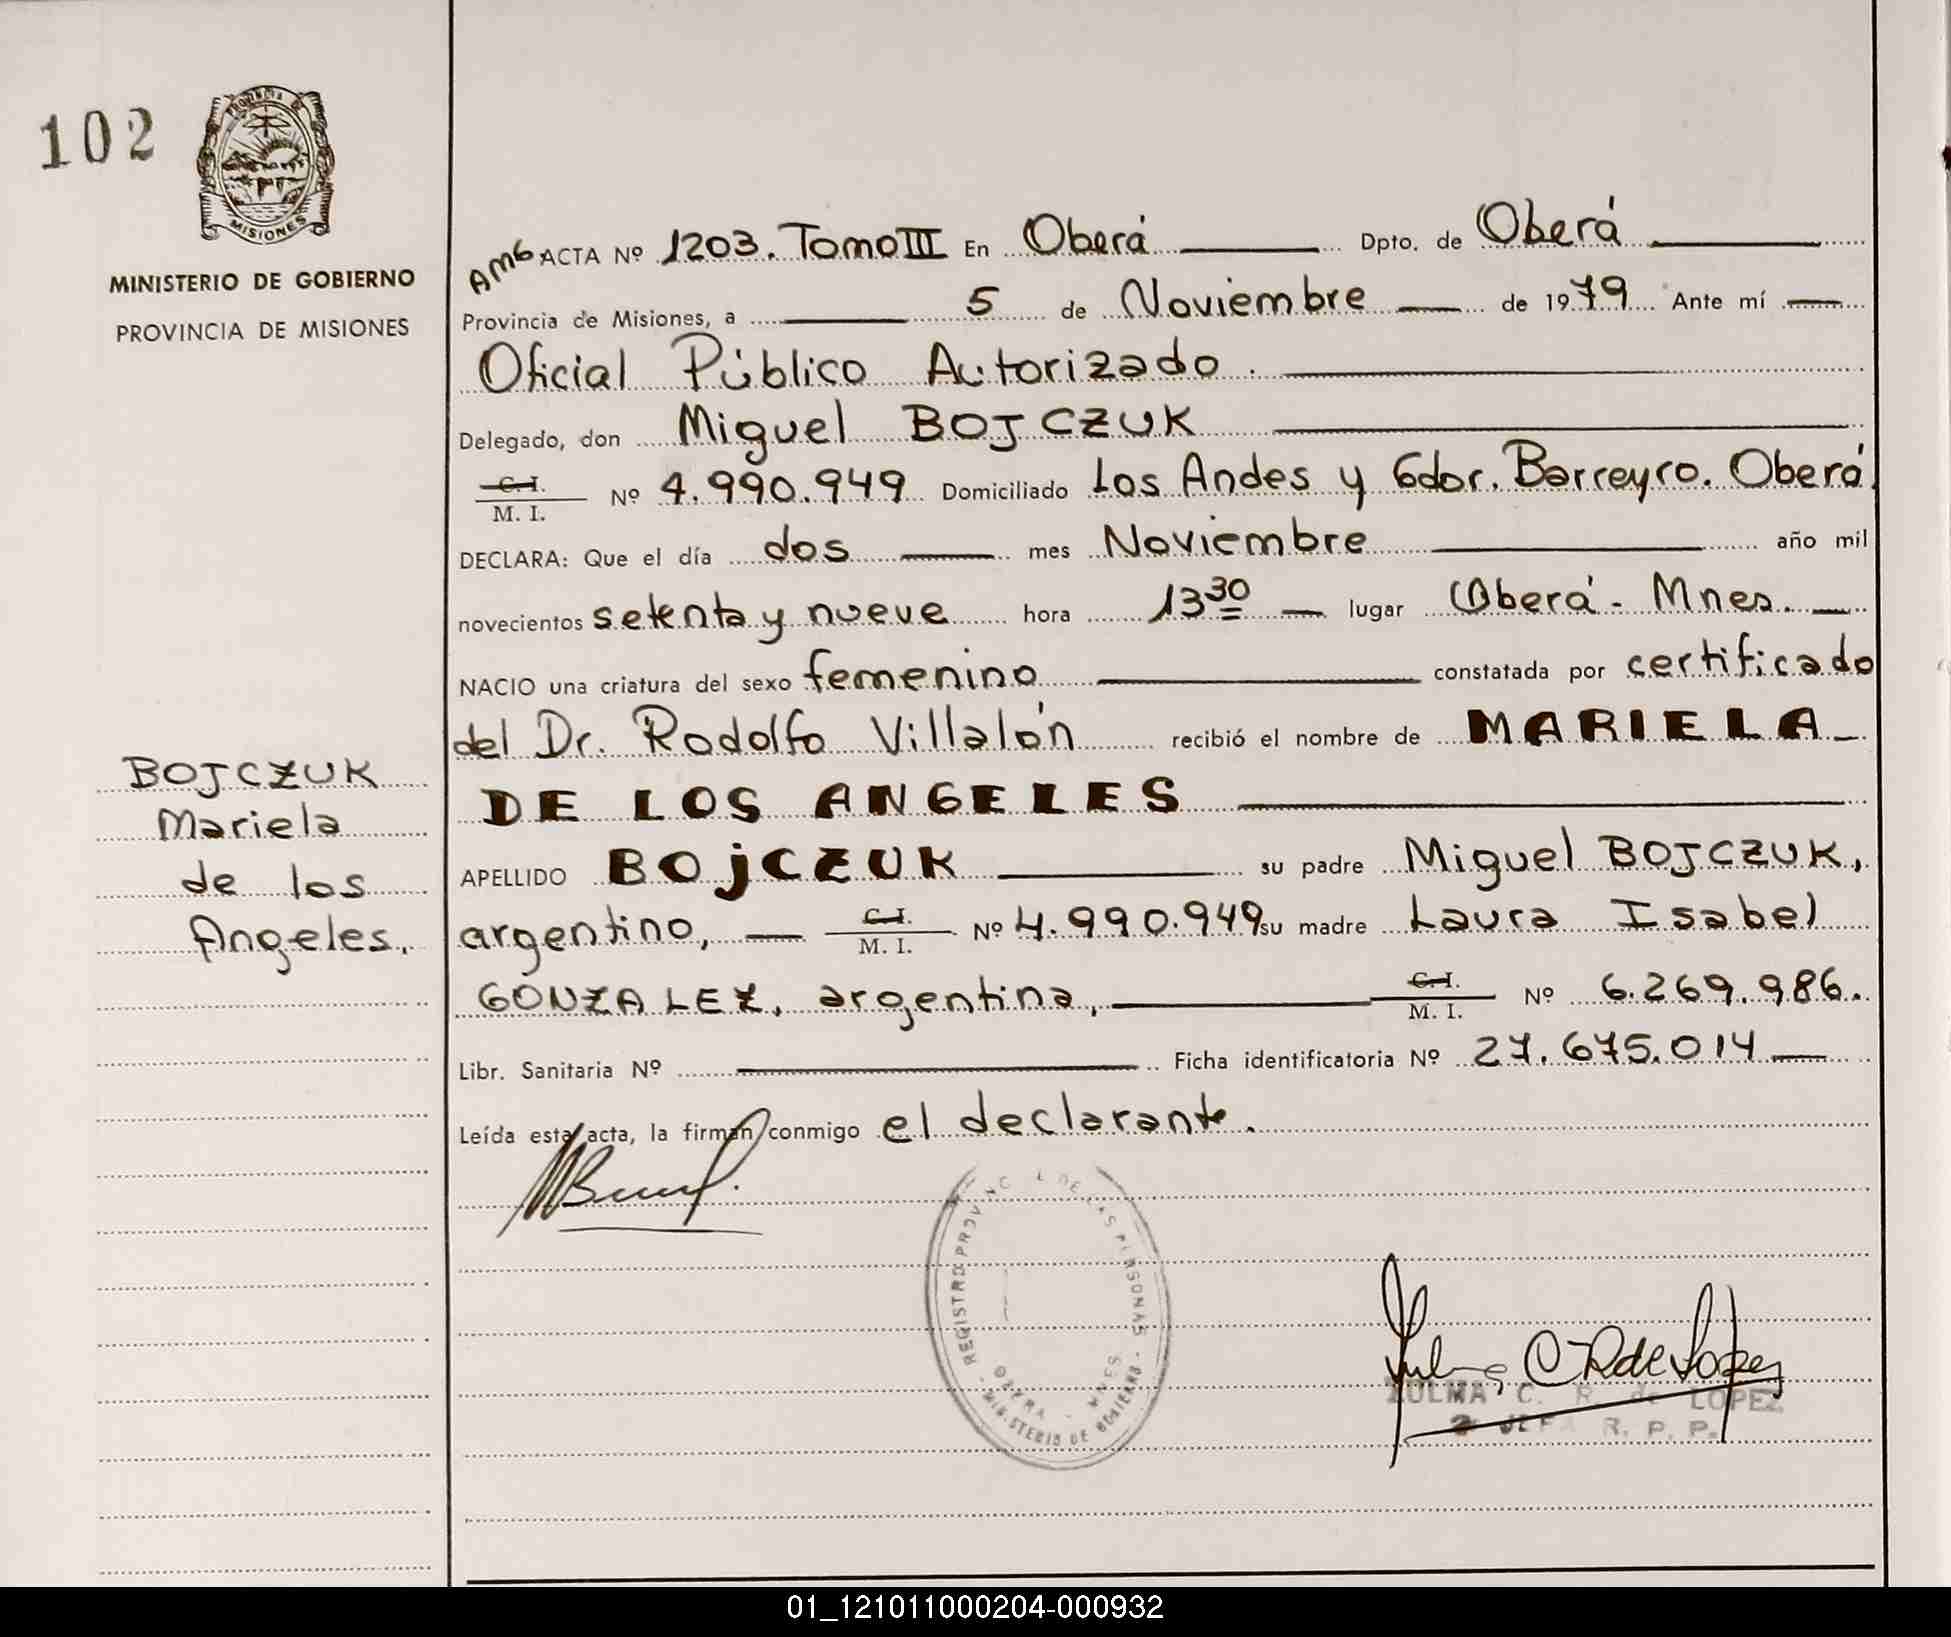 102
PROVINCIA DE
MISIONES
MINISTERIO DE GOBIERNO
PROVINCIA DE MISIONES
AMG ACTA Nº 1203. Tomo III En Oberá Dpto. de Oberá
Provincia de Misiones, a 5 de Noviembre de 1979 Ante mí
Oficial Público Autorizado.
Delegado, don Miguel BOJCZUK
C. I.
M. I. Nº 4.990.949 Domiciliado Los Andes y Gdor. Barreyro. Oberá.
DECLARA: Que el día dos mes Noviembre año mil
novecientos setenta y nueve hora 13 30 lugar Oberá - Mnes.
NACIO una criatura del sexo femenino constatada por certificado
del Dr. Rodolfo Villalón recibió el nombre de MARIELA
DE LOS ANGELES
APELLIDO BOjCZUK su padre Miguel BOJCZUK,
argentino, C. I. M. I. Nº 4.990.949 su madre Laura Isabel
GONZALEZ, argentina, C. I. M. I. Nº 6.269.986.
Libr. Sanitaria Nº Ficha identificatoria Nº 27.675.014
Leída esta acta, la firman conmigo el declarante.
BOJCZUK
Mariela
de los
Angeles.
REGISTRO PROVINC L DE LAS PERSONAS
OBERA - MNES
MINISTERIO DE GOBIERNO
Zulma C R de Lopez
ZULMA C. R. de LOPEZ
2 JEFA R. P. P.
01_121011000204-000932